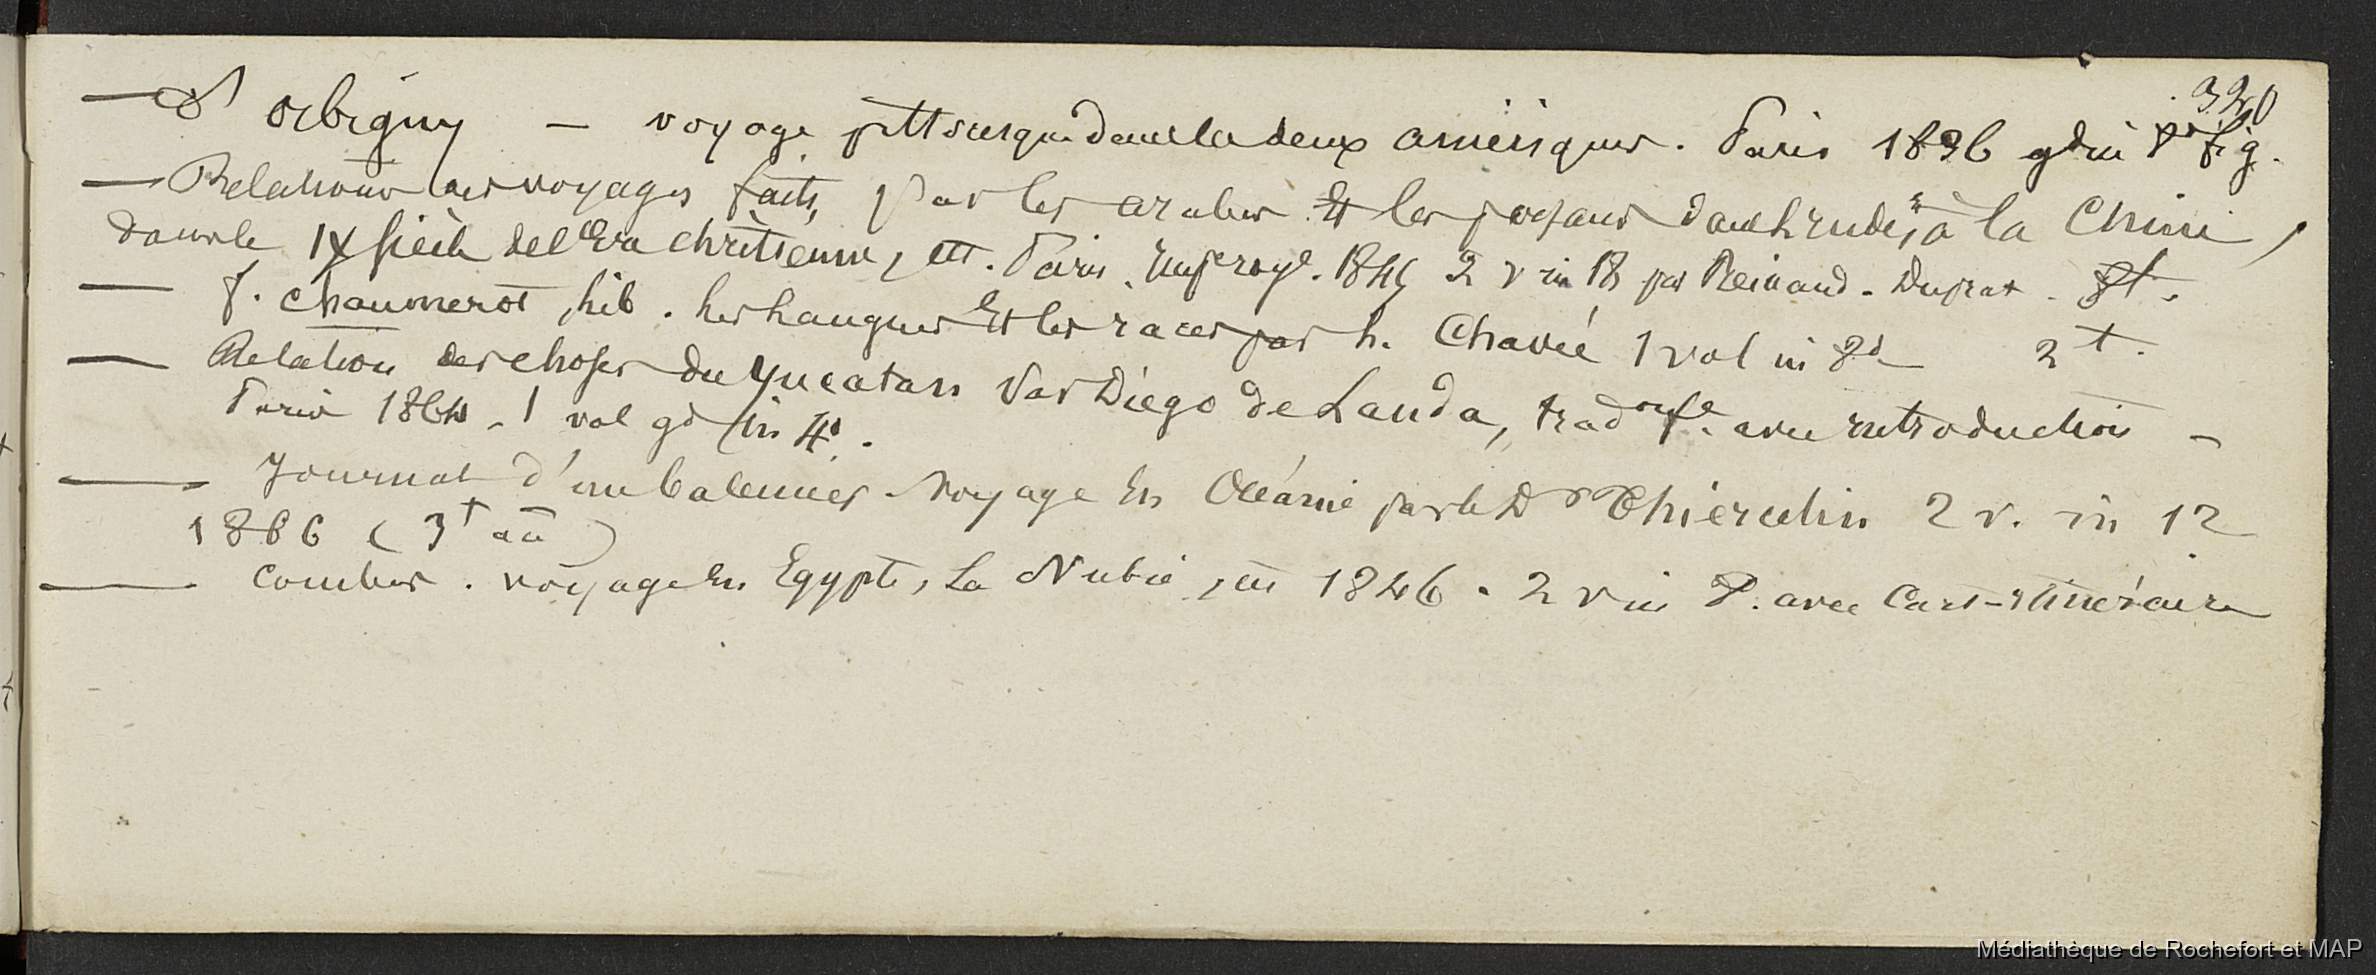 320
— d'orbigny — voyage pittoresque dans les deux amériques. Paris 1836 gd in 8° fig.
— Relations des voyages faits, par les arabes et les persans dans l'Inde, et à la Chine,
dans le IX siècle de l'Ere chrétienne, ett. Paris. Imp roy. 1845 2 v in 18 par Reinaud. Duprat. 8f.
— f. chaumerot, lib. les langues Et les races par h. Chavée 1 vol in 8° 2 f.
— Relation des choses du Yucatan Par Diego de Landa, trad. avec introduction —
Paris 1864 - 1 vol gd in 4°.
— Journal d'un baleinier. Voyage En Océanie par le Dr Thiercelin 2 v. in 12
1866 (3f
— Combes. voyage En Egypte, La Nubie, 1846. 2 v in 8. avec Carte-itinéraire
Médiathèque de Rochefort et MAP